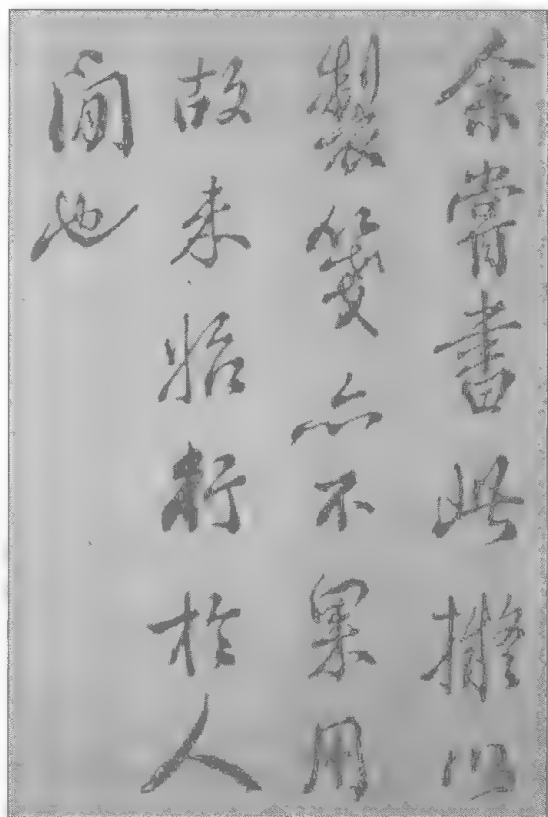 余嘗書此擬以
製箋亦不果用
故未始行於人
間也